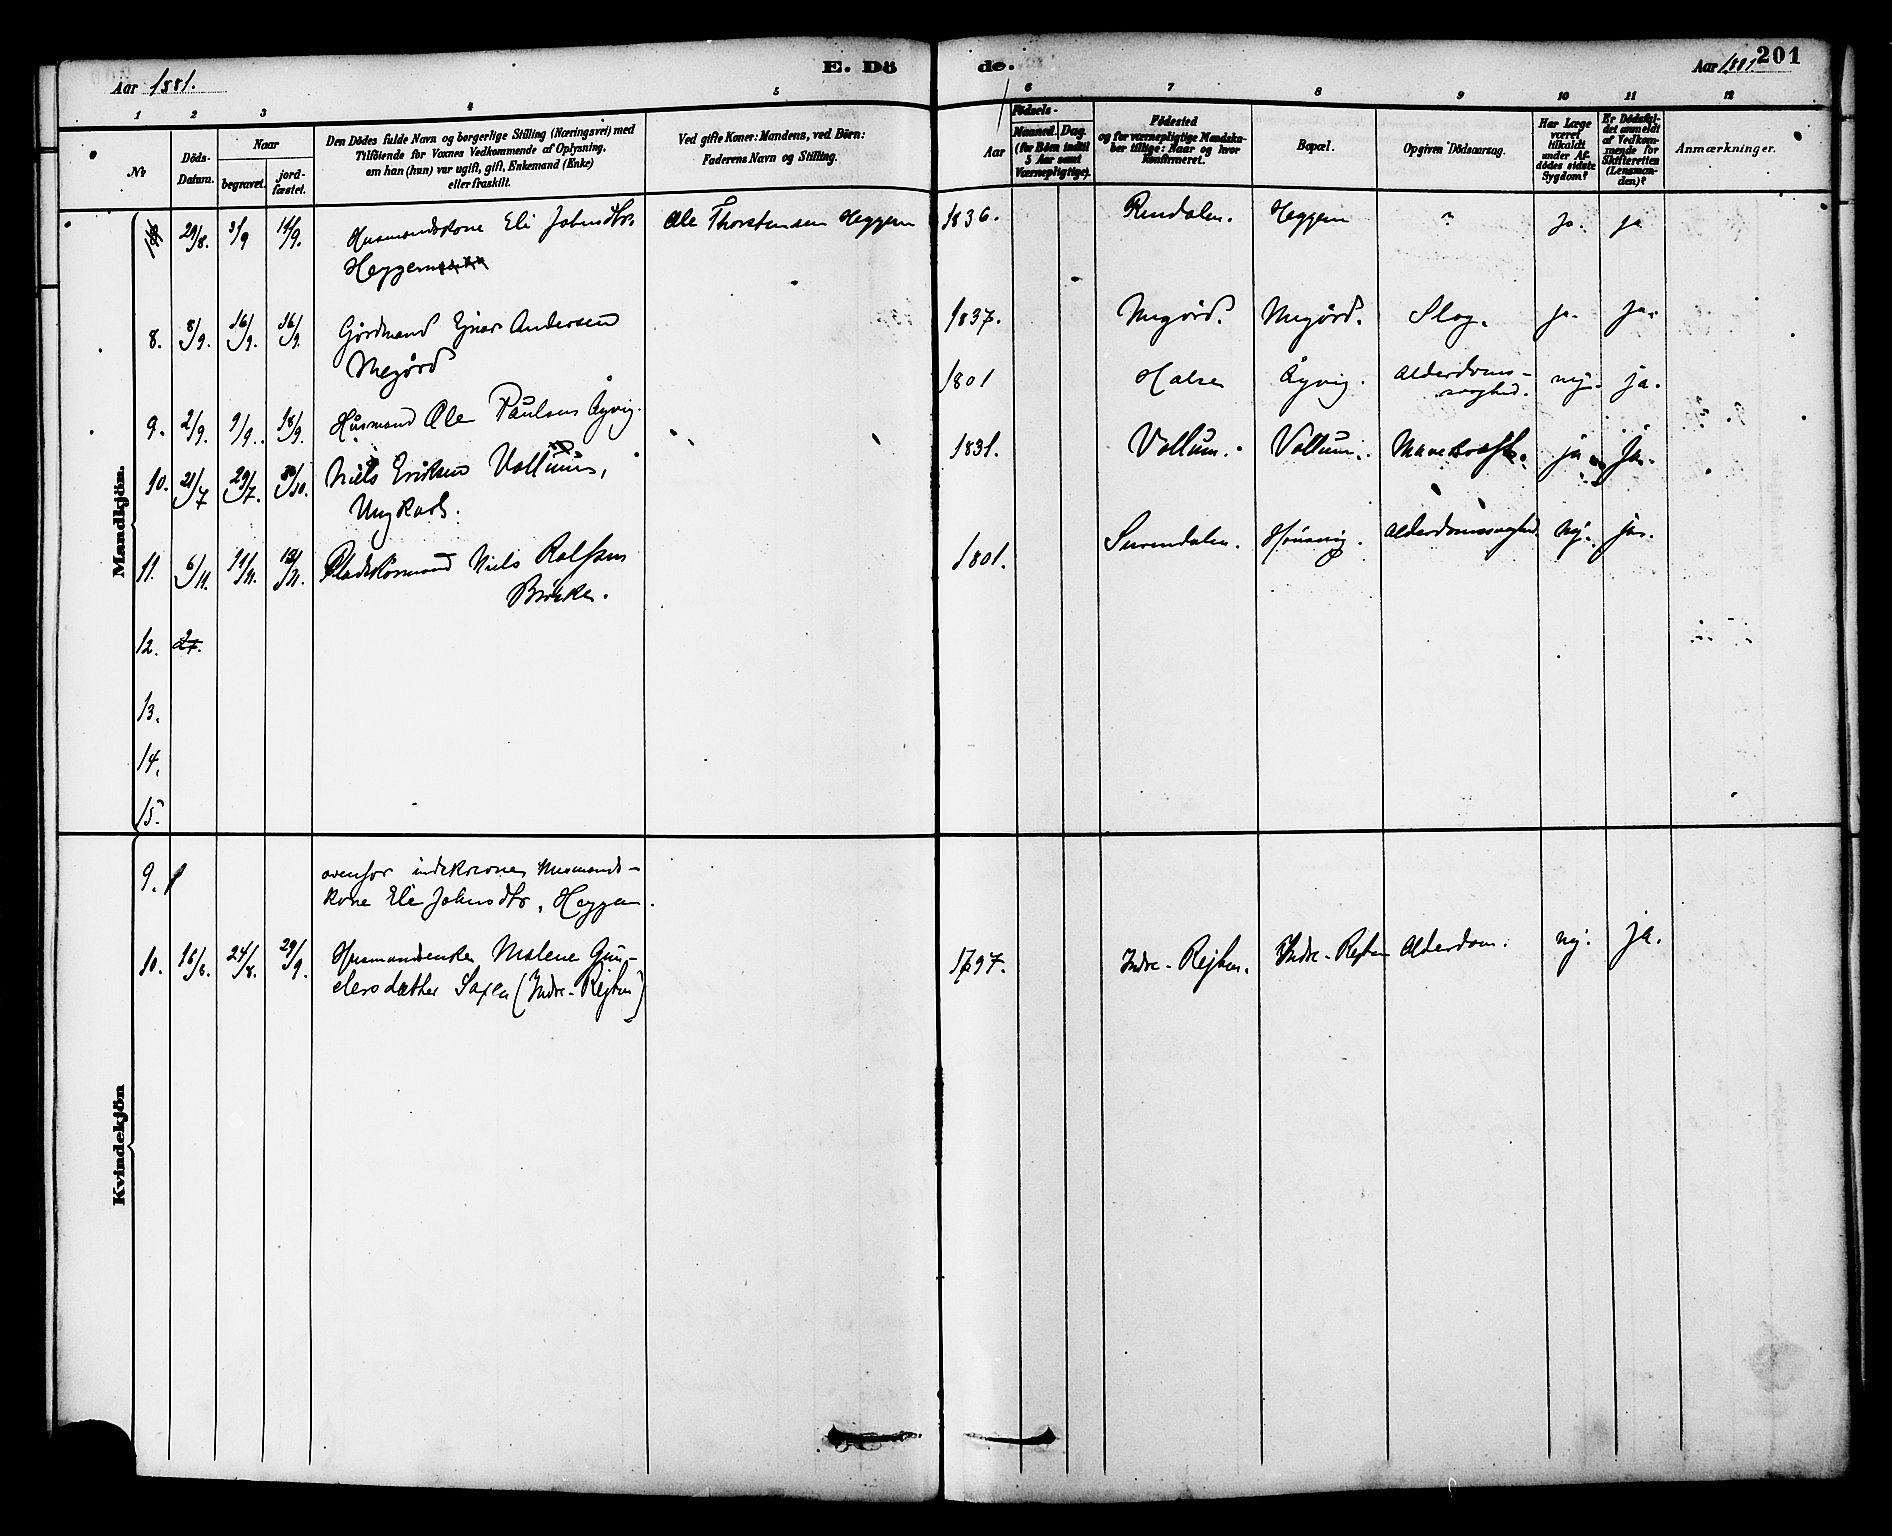 Aar 1881.
E. Dö
de.
Aar 1881.
201
1 2 3 4 5 6 7 8 9 10 11 12
No
Döds-
Datum.
Naar
begravet.
jord-
fæstet.
Den Dödes fulde Navn og borgerlige Stilling (Næringsvei) med
Tilföiende for Voxnes Vedkommende af Oplysning,
om han (hun) var ugift, gift, Enkemand (Enke)
eller fraskilt.
Ved gifte Koner: Mandens, ved Börn:
Faderens Navn og Stilling.
Födsels-
Aar
Maaned. Dag.
(for Börn indtil
5 Aar samt
Værnepligtige).
Födested
og for værnepligtige Mandska-
ber tillige: Naar og hvor
Konfirmeret.
Bopæl.
Opgiven Dödsaarsag.
Har Læge
været
tilkaldt
under Af-
dödes sidste
Sygdom?
Er Dödsfal-
det anmeldt
af Vedkom-
mende for
Skifteretten
(Lensman-
den)?
Anmærkninger.
Mandkjön.
29/8. 3/9 14/9. Husmandskone Eli Johnsdtr. Ole Thorstensen Heggem 1836. Rindalen. Heggem " ja. ja
Heggem
8. 8/9. 16/9. 16/9. Gårdmand Ejnar Andersen 1837. Megård. Megård. Slag. ja. ja.
Megård
9. 2/9. 9/9. 18/9. Husmand Ole Paulsen Åyvig. 1801 Halse Åyvig. Alderdoms-
svaghed. nej. ja.
10. 21/7 29/7. 30/10. Niels Eriksen Vollum, 1831. Vollum. Vollum. Mavekræft. ja ja.
Ungkarl.
11. 6/11. 11/11. 12/11. Niels Rolfsen 1801. Surendalen. Alderdomssvaghed. nej. ja.
12. 27.
13.
14.
15.
Kvindekjön
9. ovenfor indskrevne Husmands-
kone Eli Johnsdtr. Heggem.
10. 16/8. 24/8. 29/9. Husmandsenke Malene Gun-
dersdatter Saxen (Indre-Rejten) 1797. Indre-Rejten. Indre-Rejten Alderdom. nej. ja.